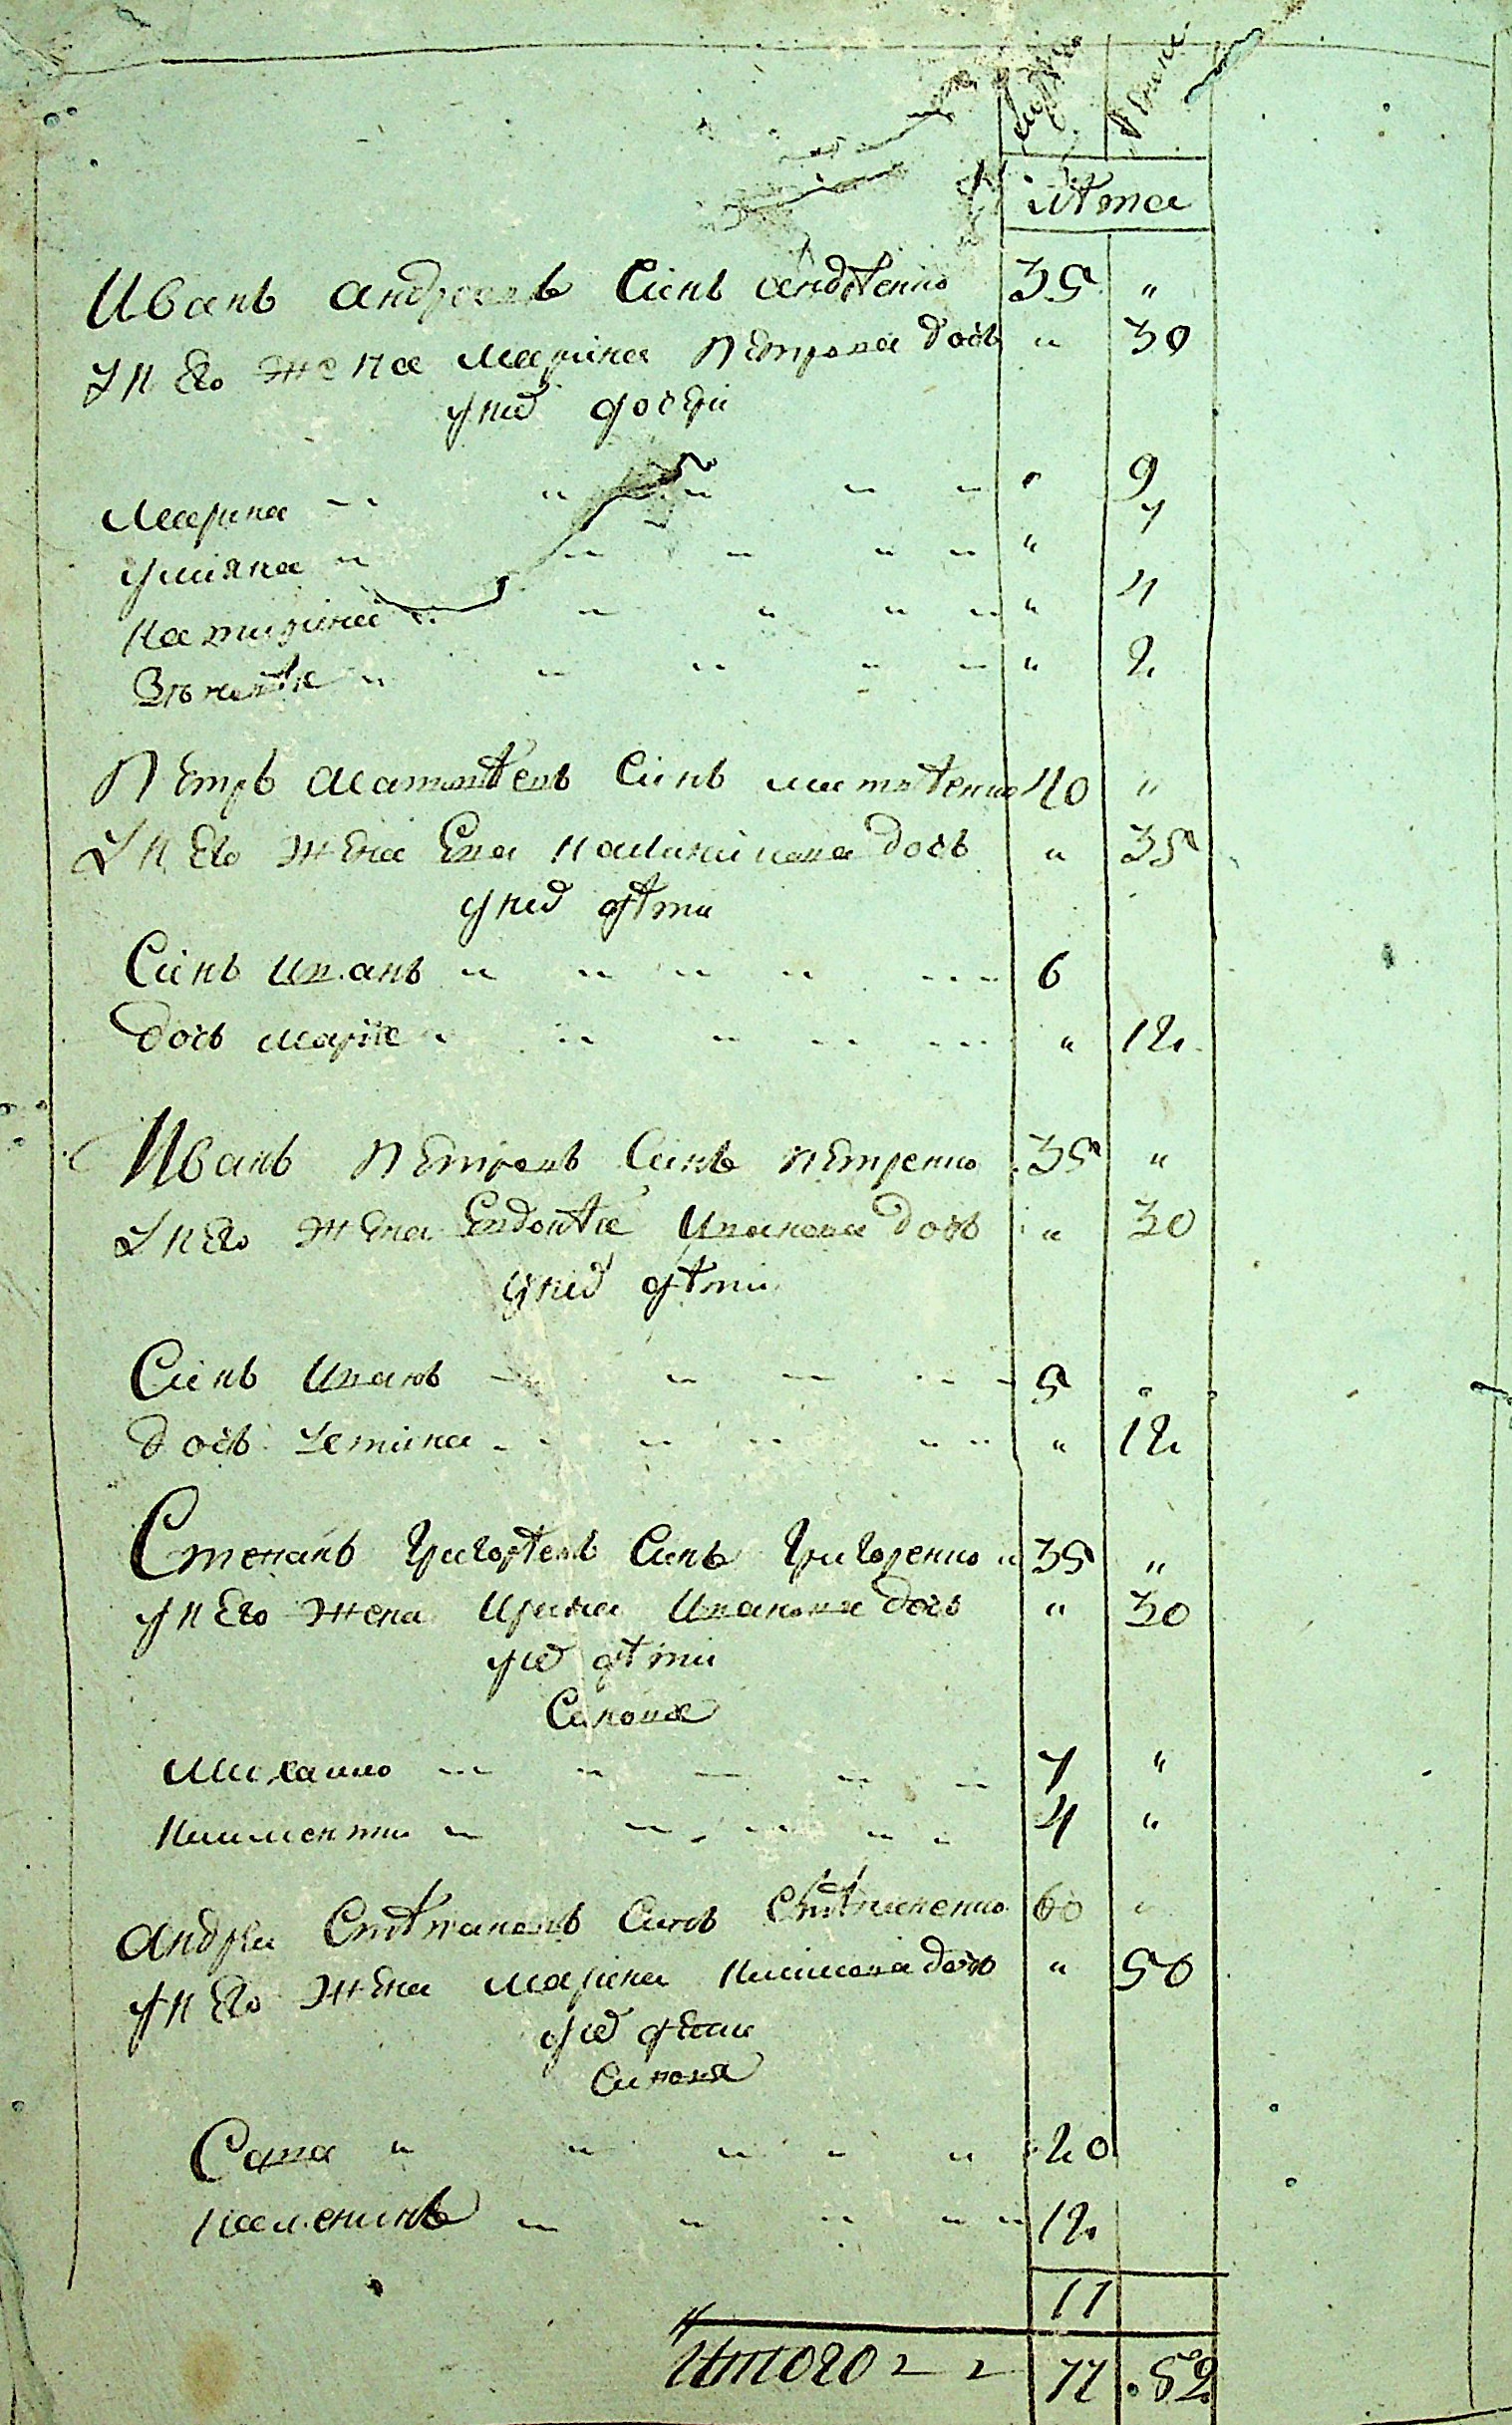 мужска женска
лѣта
Иванъ андреевъ Синъ андѣенко 35 "
у н Его жена марина петрова дочь " 30
унид дочери
Марина " 9
улияна " 7
Катирина " 4
" 2
Петръ Матвѣевъ Синъ матвѣенко 40 "
у н Его жена Ева дочь " 35
унид дѣти
Синъ иванъ 6
дочь марія " 12
Иванъ Петровъ Синъ петренко 35 "
у н Его жена Евдокѣя Иванова дочь " 30
унид дѣти
Синъ Иванъ 5 "
дочь устина " 12
Степанъ григорѣевъ Синъ григоренко 35 "
у н Его жена Ирина Иванова дочь " 30
уид дѣти
Синовя
Михаило 7 "
Климентии 4 "
андреи Стѣпановъ Синъ Стѣпаненко 60 "
у н Его жена марина Климова дочь " 50
уид дѣти
Синовя
Сава 20
12
11
Итого 77 52